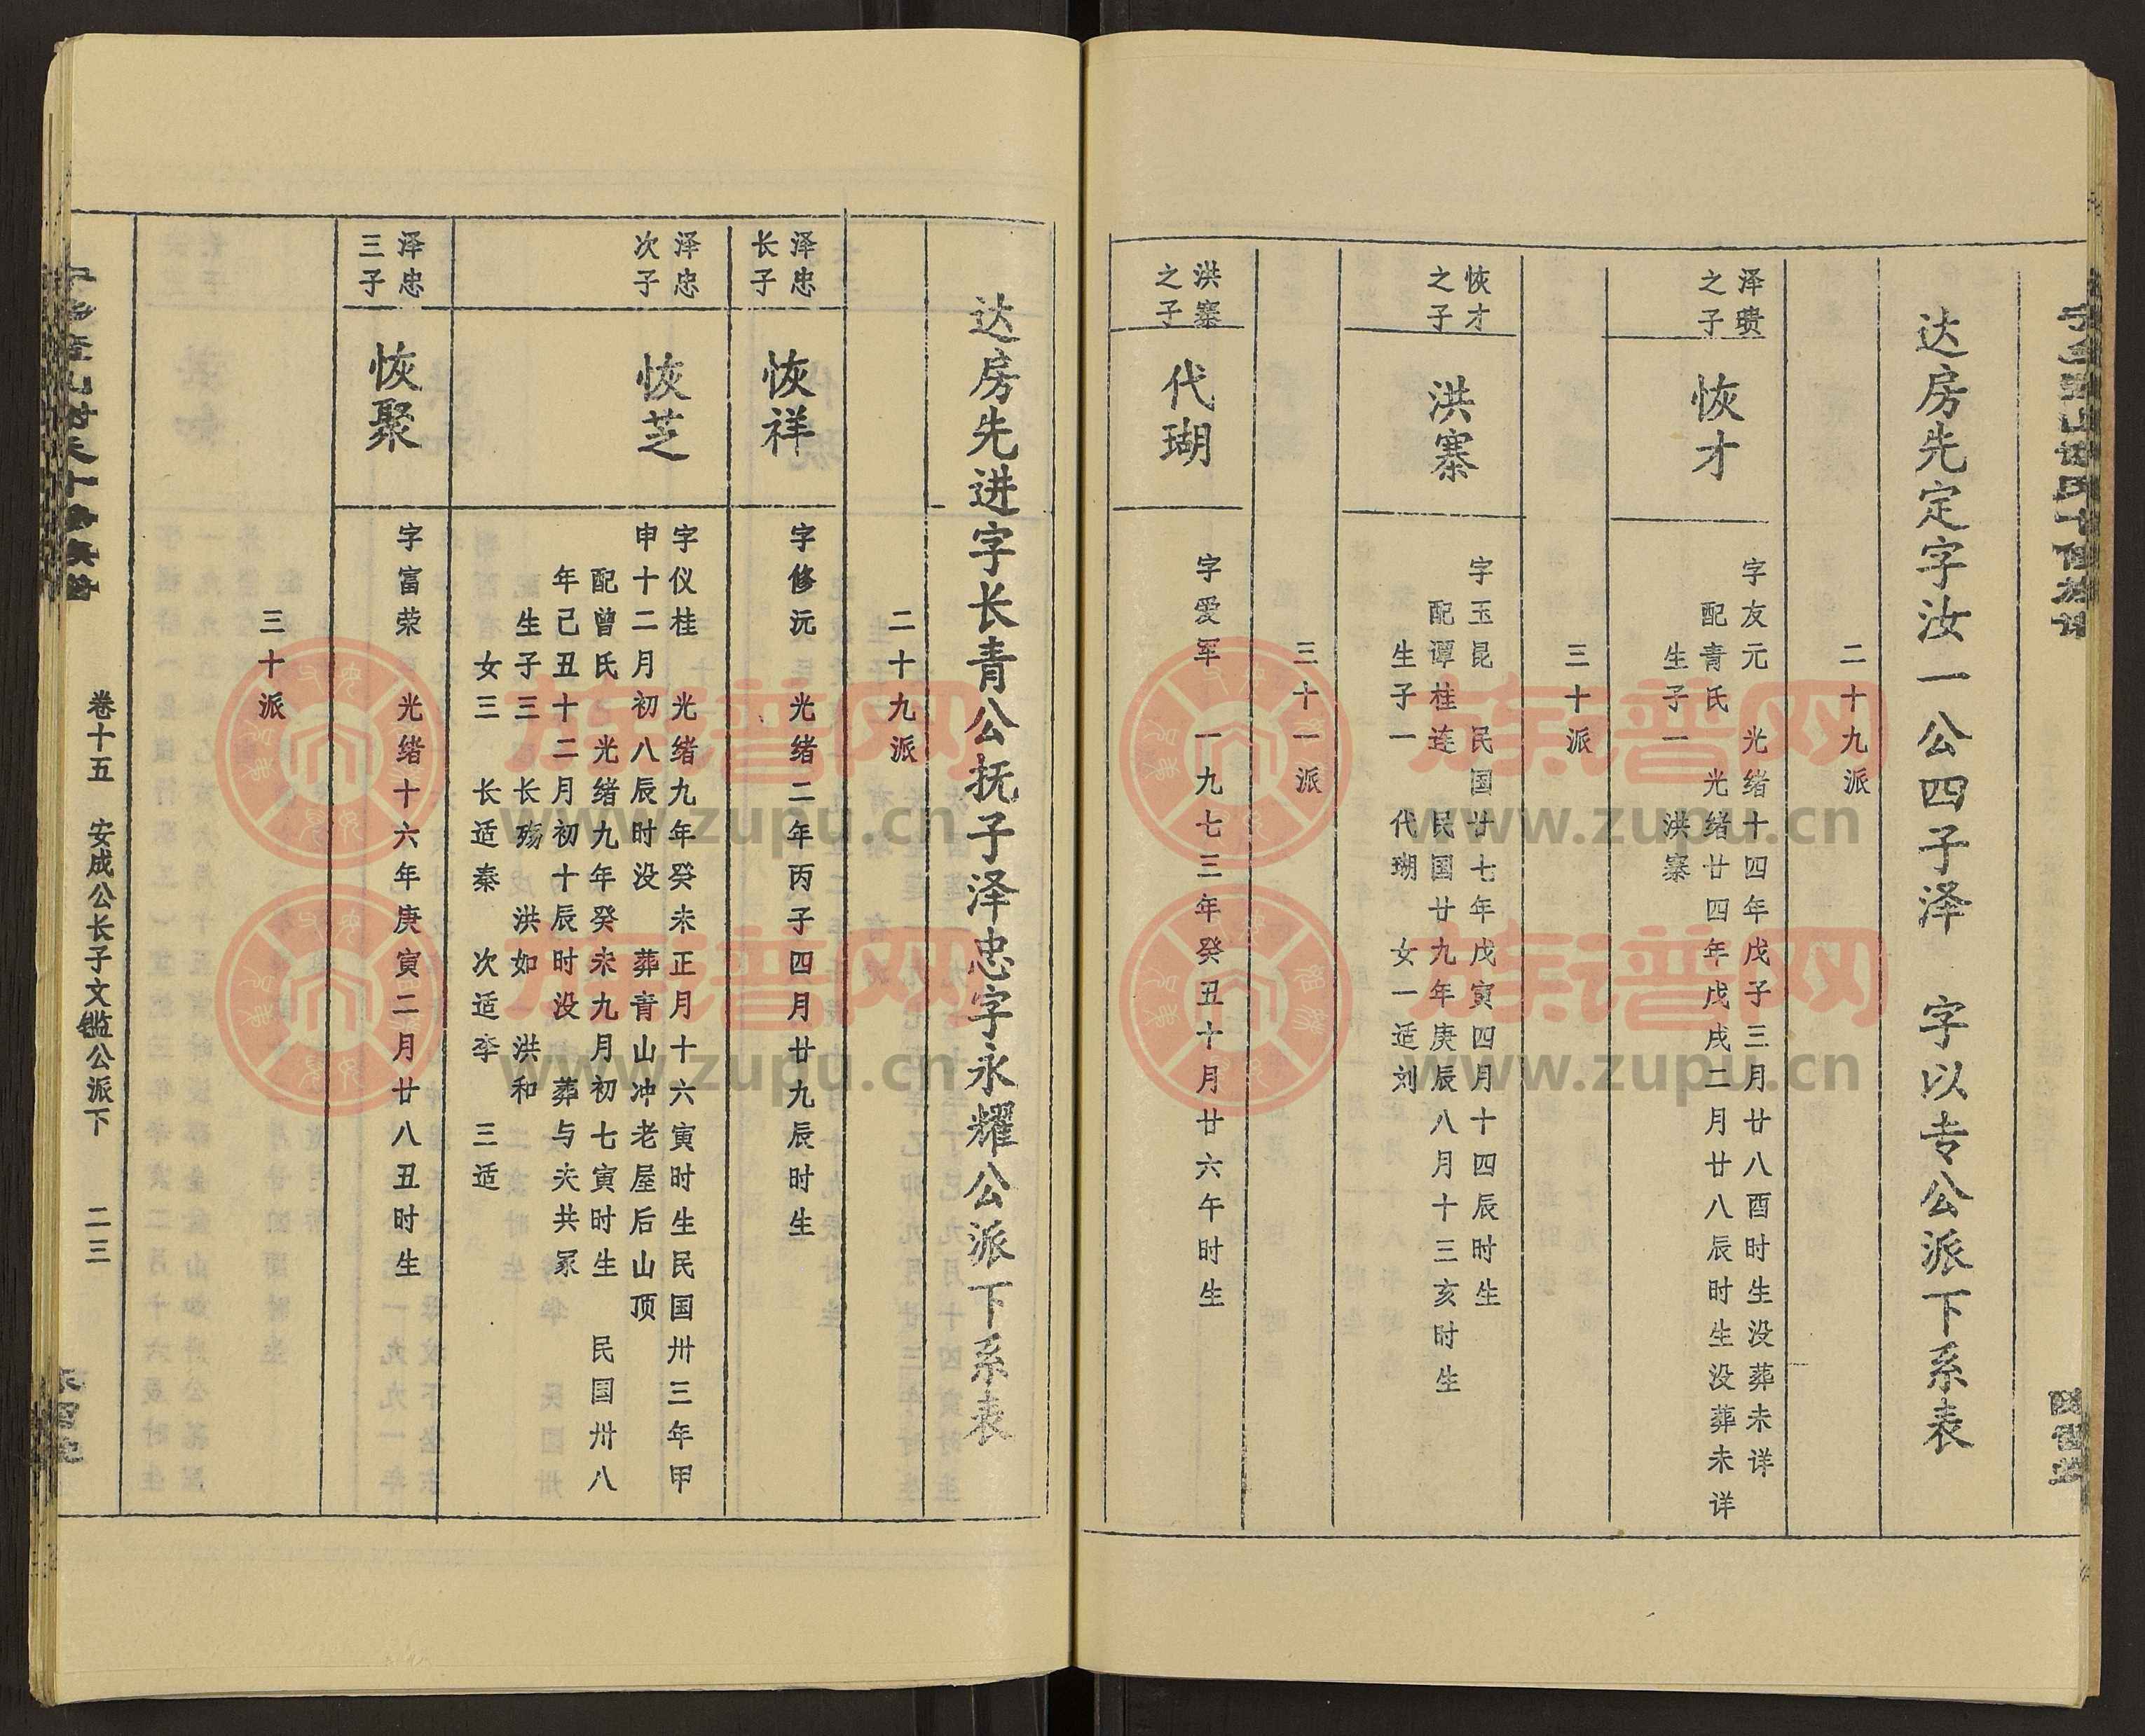 达房先定字汝一公四子泽 字以专公派下系表
二十九派
泽瓒
之子
恢才
字友元 光绪十四年戊子三月廿八酉时生没葬未详
配青氏 光绪廿四年戊戌二月廿八辰时生没葬未详
生子一 洪寨
三十派
恢才
之子
洪寨
字玉昆 民国廿七年戊寅四月十四辰时生
配谭桂连 民国廿九年庚辰八月十三亥时生
生子一 代瑚 女一适刘
三十一派
洪寨
之子
代瑚
字爱军 一九七三年癸丑十月廿六午时生
达房先进字长青公抚子泽忠字永耀公派下系表
二十九派
泽忠
长子
恢祥
字修沅 光绪二年丙子四月廿九辰时生
泽忠
次子
恢芝
字仪桂 光绪九年癸未正月十六寅时生民国卅三年甲
申十二月初八辰时没 葬青山冲老屋后山顶
配曾氏 光绪九年癸未九月初七寅时生 民国卅八
年己丑十二月初十辰时没 葬与夫共冢
生子三 长殇 洪如 洪和
女三 长适秦 次适李 三适
泽忠
三子
恢聚
字富荣 光绪十六年庚寅二月廿八丑时生
三十派
卷十五 安成公长子文鑑公派下 二三
族谱网
www.zupu.cn
族谱网
www.zupu.cn
族谱网
www.zupu.cn
族谱网
www.zupu.cn